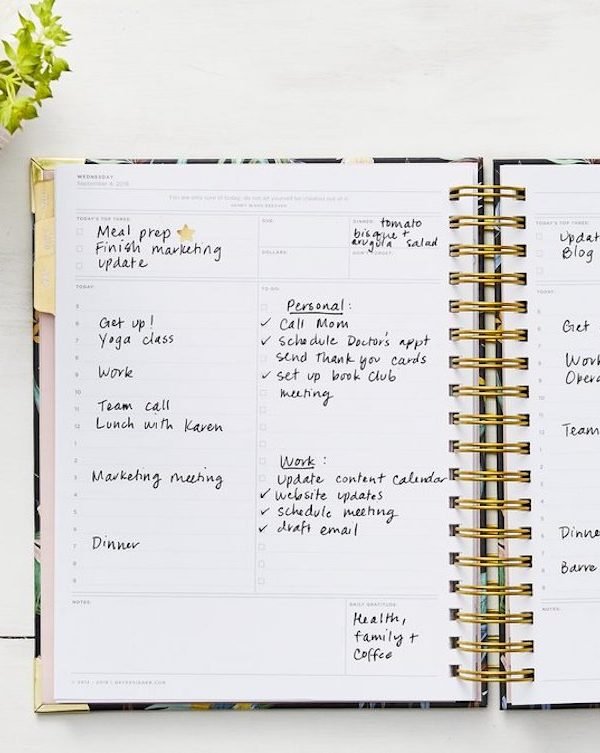 WEDNESDAY
September 4, 2019
You are only sure of today; do not let yourself be cheated out of it.
HENRY WARD BEECHER
TODAY'S TOP THREE:
Meal prep
Finish marketing
update
DUE:
DOLLARS:
DINNER:
tomato
bisque +
arugula salad
DON'T FORGET:
TODAY:
5
6 Get up!
7 Yoga class
8
9 Work
10
11 Team call
12 Lunch with Karen
1
2
3 Marketing meeting
4
5
6
7 Dinner
8
9
TO-DO:
Personal:
✓ Call Mom
✓ Schedule Doctor's appt
Send Thank you cards
✓ set up book club
meeting
Work:
Update content calendar
✓ Website updates
✓ schedule meeting
✓ draft email
NOTES:
DAILY GRATITUDE:
Health,
family +
Coffee
TODAY'S TOP THREE:
Updat
Blog
TODAY:
Get
Work
Opera
Team
Dinne
Barre
NOTES: